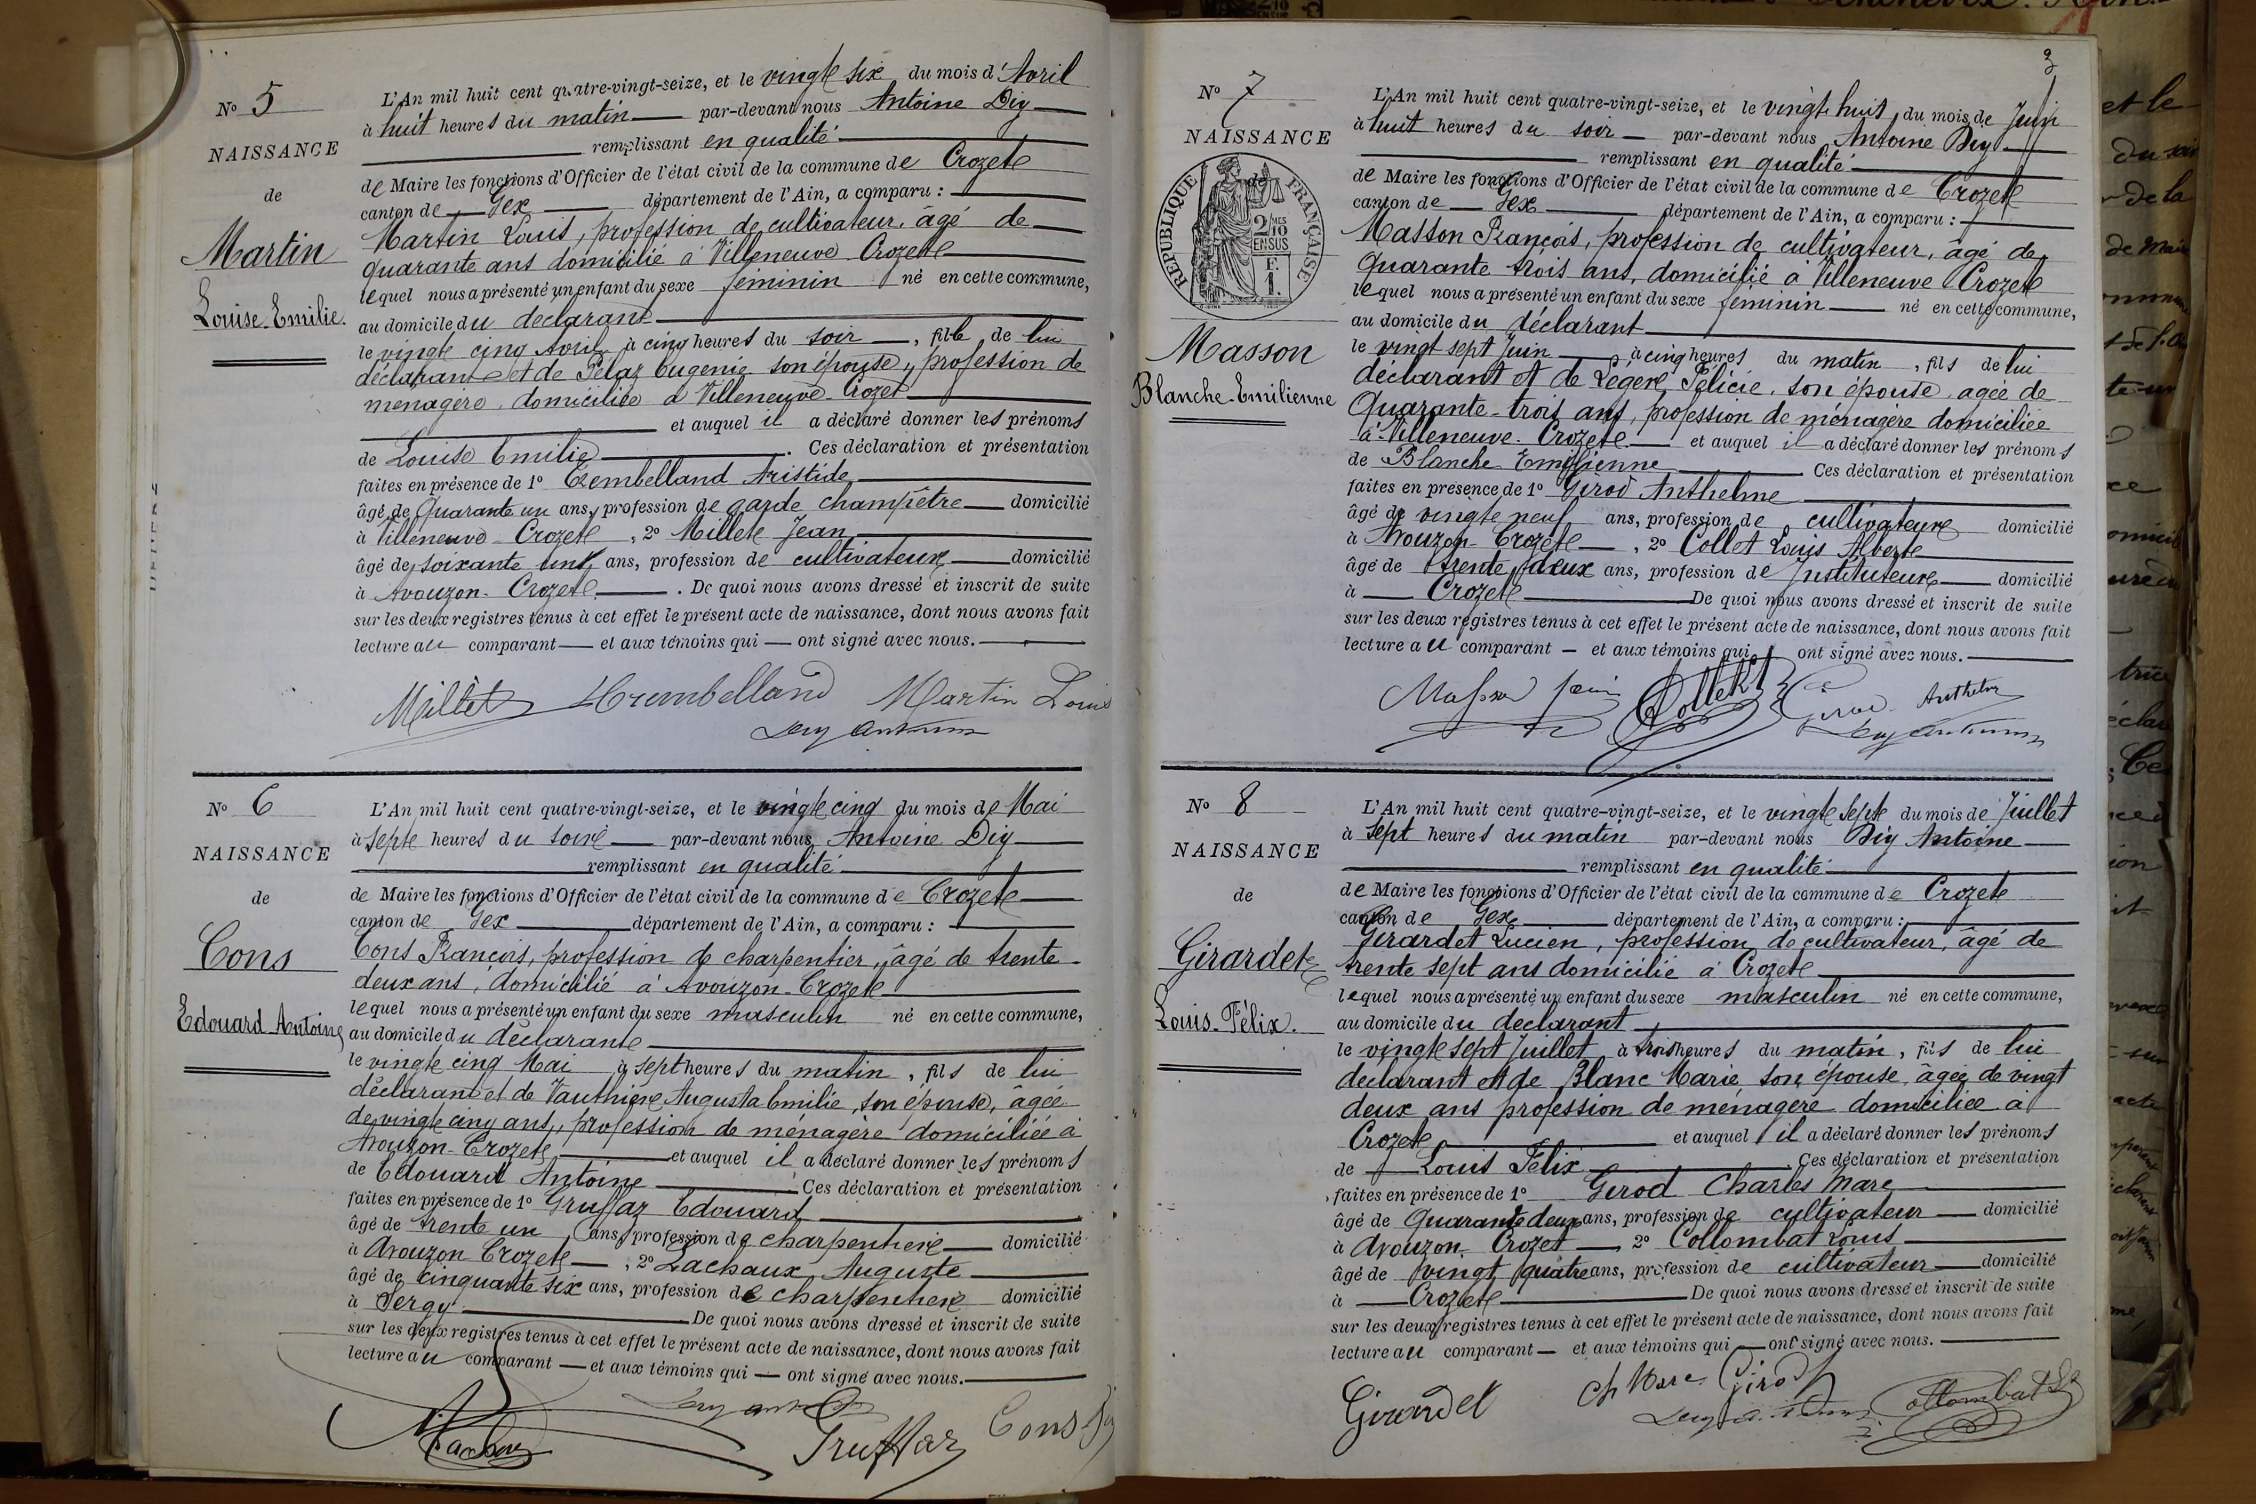 No 5
NAISSANCE
de
Martin
Louise-Emilie.
L'An mil huit cent quatre-vingt-seize, et le vingt six du mois d'Avril
à huit heures du matin par-devant nous Antoine Diy
remplissant en qualité
de Maire les fonctions d'Officier de l'état civil de la commune de Crozet
canton de Gex département de l'Ain, a comparu :
Martin Louis, profession de cultivateur, âgé de
quarante ans domicilié à Villeneuve Crozet
lequel nous a présenté un enfant du sexe féminin né en cette commune,
au domicile du déclarant
le vingt cinq Avril à cinq heures du soir, fille de lui
déclarant et de Pelaz Eugénie son épouse, profession de
ménagère, domiciliée à Villeneuve-Crozet
et auquel il a déclaré donner les prénoms
de Louise Emilie. Ces déclaration et présentation
faites en présence de 1o Trembelland Aristide
âgé de Quarante un ans, profession de garde champêtre domicilié
à Villeneuve-Crozet, 2o Millet Jean
âgé de soixante ans, profession de cultivateur domicilié
à Avouzon-Crozet. De quoi nous avons dressé et inscrit de suite
sur les deux registres tenus à cet effet le présent acte de naissance, dont nous avons fait
lecture au comparant et aux témoins qui ont signé avec nous.
Millet Trembelland Martin Louis
No 6
NAISSANCE
de
Cons
Edouard Antoine
L'An mil huit cent quatre-vingt-seize, et le vingt cinq du mois de Mai
à sept heures du soir par-devant nous Antoine Diy
remplissant en qualité
de Maire les fonctions d'Officier de l'état civil de la commune de Crozet
canton de Gex département de l'Ain, a comparu :
Cons François, profession de charpentier, âgé de trente
deux ans, domicilié à Avouzon-Crozet
lequel nous a présenté un enfant du sexe masculin né en cette commune,
au domicile du déclarant
le vingt cinq Mai à sept heures du matin, fils de lui
déclarant et de Vauthier Augusta Emilie, son épouse, âgée
de vingt cinq ans, profession de ménagère domiciliée à
Avouzon-Crozet et auquel il a déclaré donner les prénoms
de Edouard Antoine Ces déclaration et présentation
faites en présence de 1o Gruffaz Edouard
âgé de trente un ans, profession de charpentier domicilié
à Avouzon Crozet, 2o Lachaux Auguste
âgé de cinquante six ans, profession de charpentier domicilié
à Sergy De quoi nous avons dressé et inscrit de suite
sur les deux registres tenus à cet effet le présent acte de naissance, dont nous avons fait
lecture au comparant et aux témoins qui ont signé avec nous.
Gruffaz Cons
3
No 7
NAISSANCE
de
RÉPUBLIQUE FRANÇAISE
2/10
EN SUS
1 F.
Masson
Blanche-Emilienne
L'An mil huit cent quatre-vingt-seize, et le vingt huit du mois de Juin
à huit heures du soir par-devant nous Antoine Diy
remplissant en qualité
de Maire les fonctions d'Officier de l'état civil de la commune de Crozet
canton de Gex département de l'Ain, a comparu :
Masson François, profession de cultivateur, âgé de
Quarante trois ans, domicilié à Villeneuve Crozet
lequel nous a présenté un enfant du sexe féminin né en cette commune,
au domicile du déclarant
le vingt sept Juin à cinq heures du matin, fils de lui
déclarant et de Léger Félicie, son épouse, agée de
Quarante-trois ans, profession de ménagère domiciliée
à Villeneuve-Crozet et auquel il a déclaré donner les prénoms
de Blanche Emilienne Ces déclaration et présentation
faites en présence de 1o Girod Anthelme
âgé de vingt neuf ans, profession de cultivateur domicilié
à Avouzon-Crozet, 2o Collet Louis Albert
âgé de trente deux ans, profession de Instituteur domicilié
à Crozet De quoi nous avons dressé et inscrit de suite
sur les deux registres tenus à cet effet le présent acte de naissance, dont nous avons fait
lecture au comparant et aux témoins qui ont signé avec nous.
Collet Girod Anthelme
No 8
NAISSANCE
de
Girardet
Louis-Félix.
L'An mil huit cent quatre-vingt-seize, et le vingt sept du mois de Juillet
à sept heures du matin par-devant nous Diy Antoine
remplissant en qualité
de Maire les fonctions d'Officier de l'état civil de la commune de Crozet
canton de Gex département de l'Ain, a comparu :
Girardet Lucien, profession de cultivateur, âgé de
trente sept ans domicilié à Crozet
lequel nous a présenté un enfant du sexe masculin né en cette commune,
au domicile du déclarant
le vingt sept Juillet à trois heures du matin, fils de lui
déclarant et de Blanc Marie son épouse, âgée de vingt
deux ans profession de ménagère domiciliée à
Crozet et auquel il a déclaré donner les prénoms
de Louis Félix. Ces déclaration et présentation
faites en présence de 1o Girod Charles Marc
âgé de Quarante deux ans, profession de cultivateur domicilié
à Avouzon Crozet, 2o Collombat Louis
âgé de vingt quatre ans, profession de cultivateur domicilié
à Crozet De quoi nous avons dressé et inscrit de suite
sur les deux registres tenus à cet effet le présent acte de naissance, dont nous avons fait
lecture au comparant et aux témoins qui ont signé avec nous.
Girardet Ch Marc Girod Collombat Ls